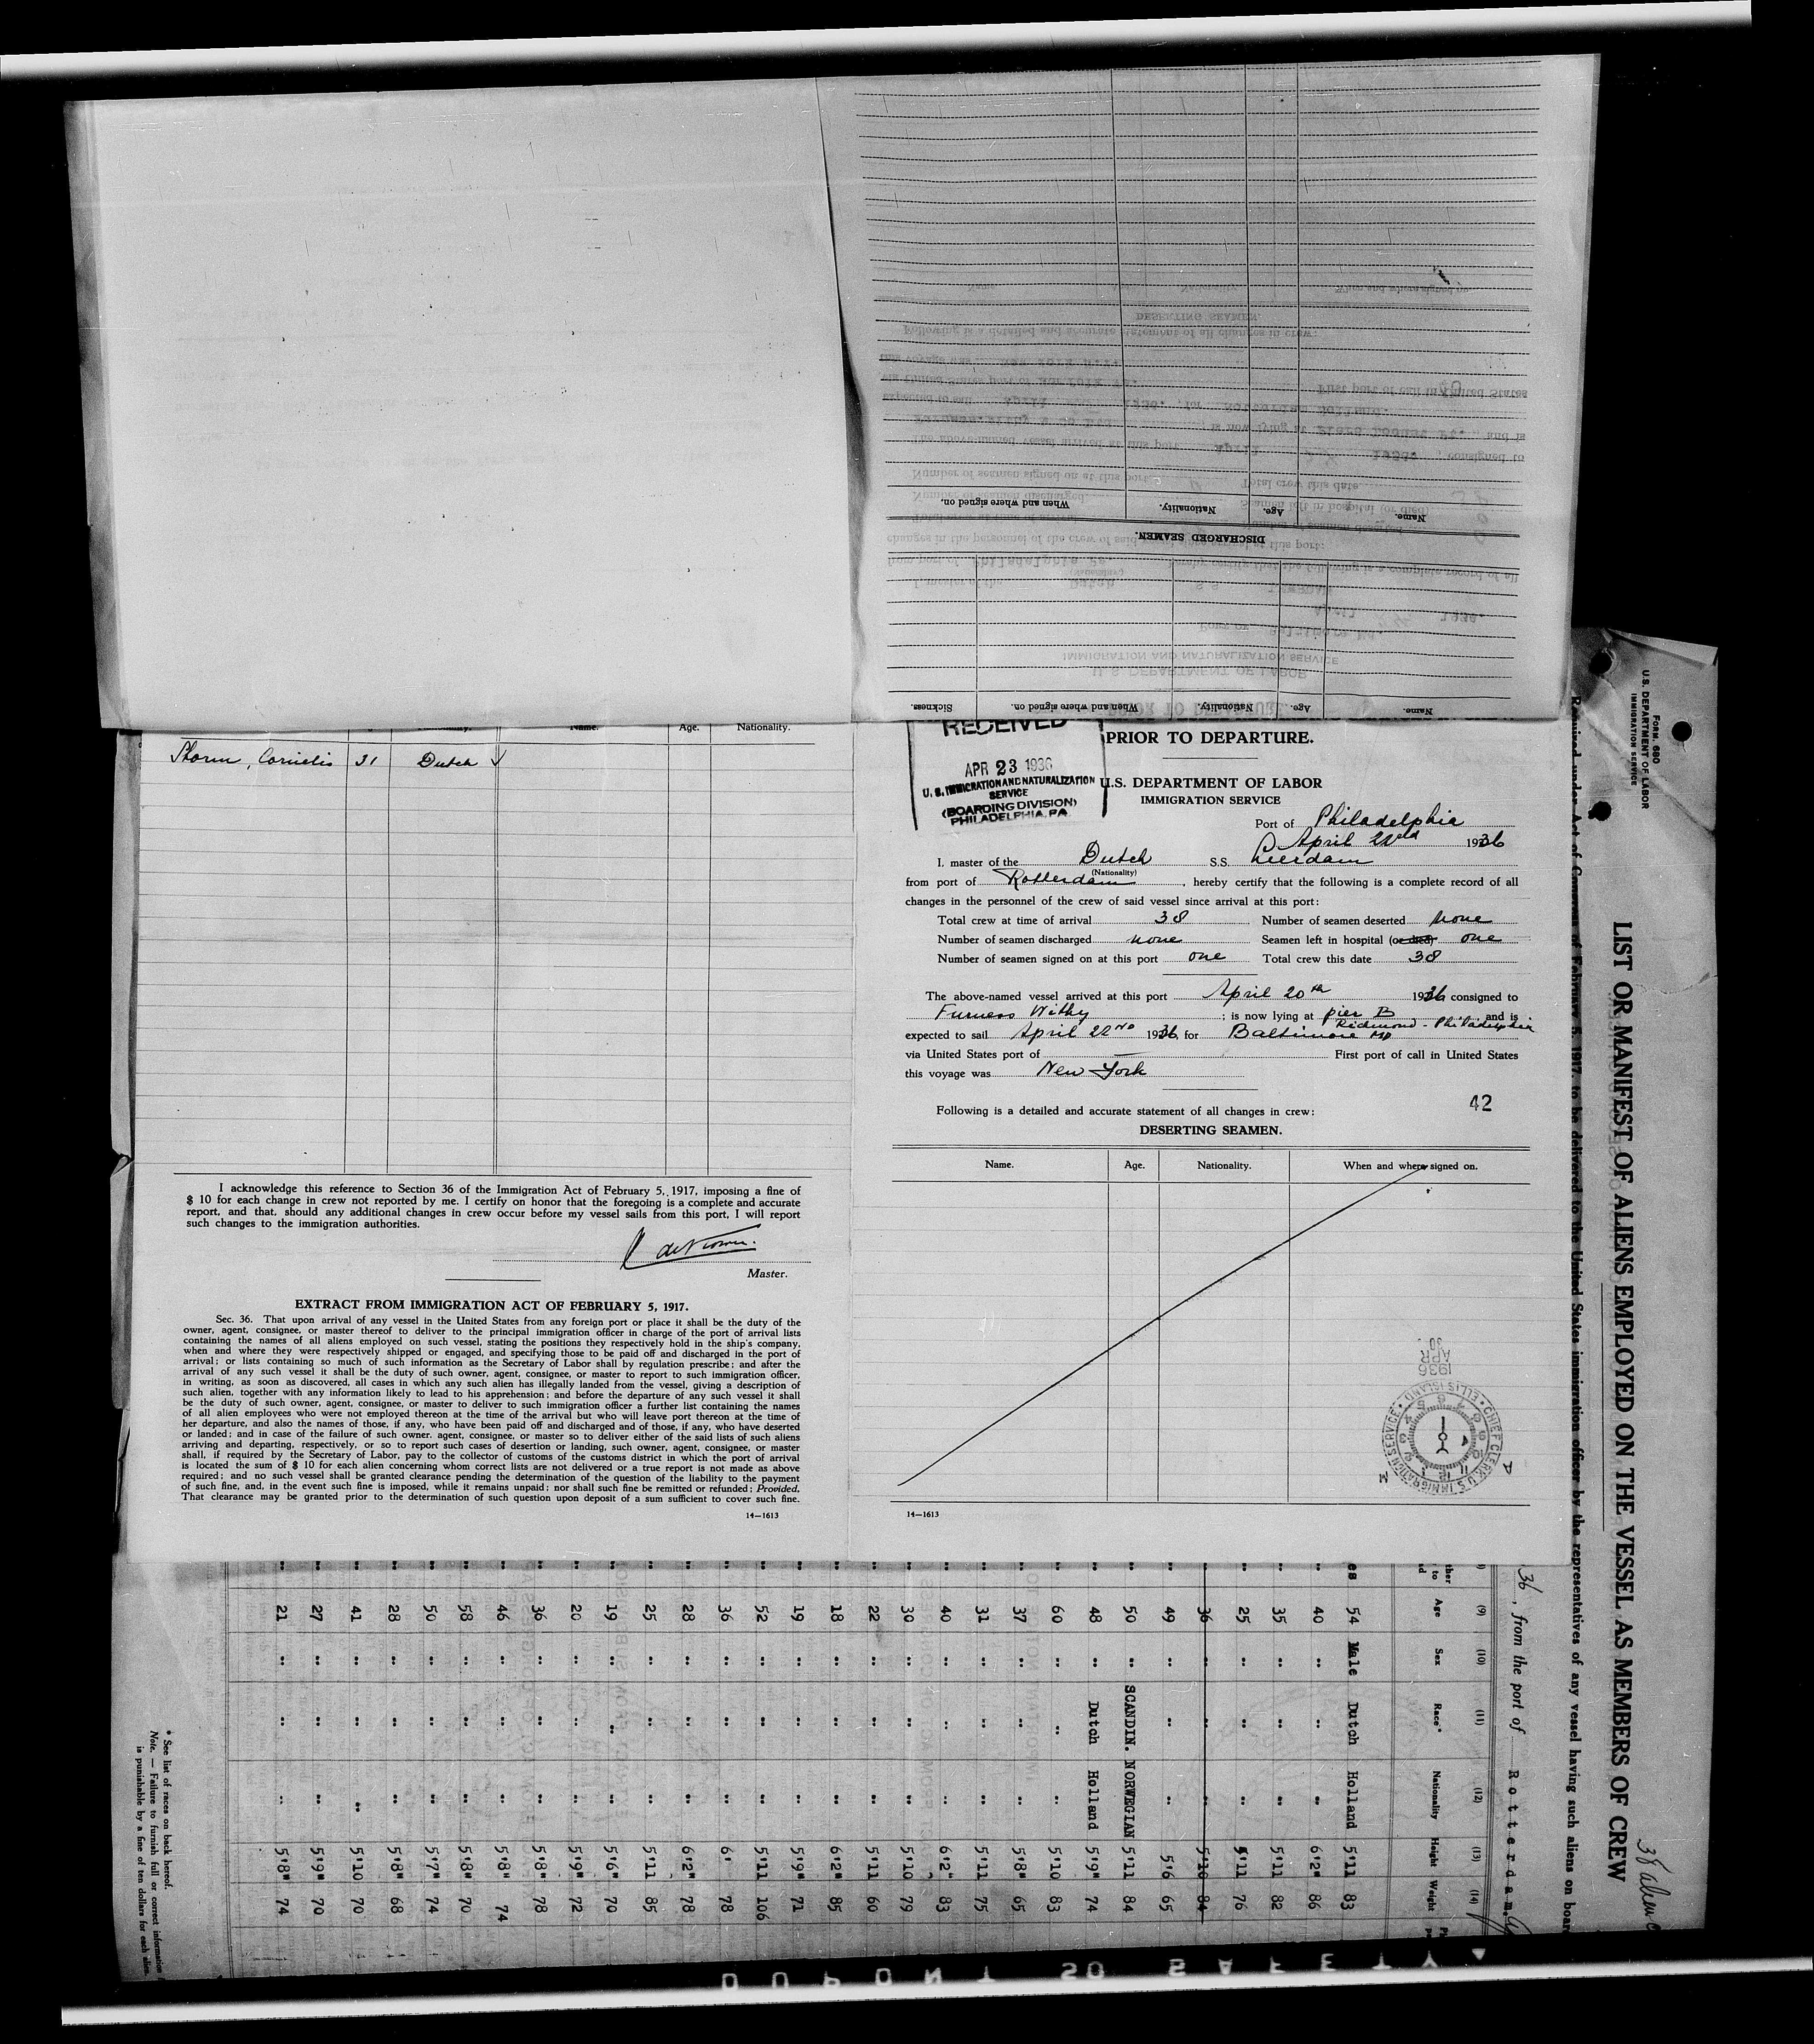 Name.
Age.
Nationality.
When and where signed on.
Sickness.
DISCHARGED SEAMEN.
Name.
Age.
Nationality.
When and where signed on.
Name.
Age.
Nationality.
Storm, Cornelis 31 Dutch ✓
I acknowledge this reference to Section 36 of the Immigration Act of February 5, 1917, imposing a fine of
$ 10 for each change in crew not reported by me. I certify on honor that the foregoing is a complete and accurate
report, and that, should any additional changes in crew occur before my vessel sails from this port, I will report
such changes to the immigration authorities.
Master.
EXTRACT FROM IMMIGRATION ACT OF FEBRUARY 5, 1917.
Sec. 36. That upon arrival of any vessel in the United States from any foreign port or place it shall be the duty of the
owner, agent, consignee, or master thereof to deliver to the principal immigration officer in charge of the port of arrival lists
containing the names of all aliens employed on such vessel, stating the positions they respectively hold in the ship's company,
when and where they were respectively shipped or engaged, and specifying those to be paid off and discharged in the port of
arrival; or lists containing so much of such information as the Secretary of Labor shall by regulation prescribe; and after the
arrival of any such vessel it shall be the duty of such owner, agent, consignee, or master to report to such immigration officer,
in writing, as soon as discovered, all cases in which any such alien has illegally landed from the vessel, giving a description of
such alien, together with any information likely to lead to his apprehension; and before the departure of any such vessel it shall
be the duty of such owner, agent, consignee, or master to deliver to such immigration officer a further list containing the names
of all alien employees who were not employed thereon at the time of the arrival but who will leave port thereon at the time of
her departure, and also the names of those, if any, who have been paid off and discharged and of those, if any, who have deserted
or landed; and in case of the failure of such owner, agent, consignee, or master so to deliver either of the said lists of such aliens
arriving and departing, respectively, or so to report such cases of desertion or landing, such owner, agent, consignee, or master
shall, if required by the Secretary of Labor, pay to the collector of customs of the customs district in which the port of arrival
is located the sum of $ 10 for each alien concerning whom correct lists are not delivered or a true report is not made as above
required; and no such vessel shall be granted clearance pending the determination of the question of the liability to the payment
of such fine, and, in the event such fine is imposed, while it remains unpaid; nor shall such fine be remitted or refunded; Provided,
That clearance may be granted prior to the determination of such question upon deposit of a sum sufficient to cover such fine.
14—1613
RECEIVED
APR 23 1936
U. S. IMMIGRATION AND NATURALIZATION
SERVICE
(BOARDING DIVISION)
PHILADELPHIA, PA.
PRIOR TO DEPARTURE.
U.S. DEPARTMENT OF LABOR
IMMIGRATION SERVICE
Port of Philadelphia
April 22nd 1936
I, master of the Dutch S.S. Leerdam
(Nationality)
from port of Rotterdam, hereby certify that the following is a complete record of all
changes in the personnel of the crew of said vessel since arrival at this port:
Total crew at time of arrival 38 Number of seamen deserted none
Number of seamen discharged none Seamen left in hospital (or died) one
Number of seamen signed on at this port one Total crew this date 38
The above-named vessel arrived at this port April 20th 1936 consigned to
Furness Withy ; is now lying at pier B and is
Richmond - Philadelphia
expected to sail April 22nd 1936, for Baltimore MD
via United States port of — First port of call in United States
this voyage was New York
42
Following is a detailed and accurate statement of all changes in crew:
DESERTING SEAMEN.
Name. Age. Nationality. When and where signed on.
1936
APR
30
CHIEF CLERK U.S. IMMIGRATION SERVICE • ELLIS ISLAND •
14—1613
Form 680
U.S. DEPARTMENT OF LABOR
IMMIGRATION SERVICE
LIST OR MANIFEST OF ALIENS EMPLOYED ON THE VESSEL AS MEMBERS OF CREW
38 alien
Required under Act of Congress of February 5, 1917, to be delivered to the United States immigration officer by the representatives of any vessel having such aliens on board
36, from the port of Rotterdam.
(9) (10) (11) (12) (13) (14)
Age Sex Race* Nationality Height Weight
54 Male Dutch Holland 5'11 83
40 " " " 6'2" 86
35 " " " 5'11 82
25 " " " 5'11 76
36 " " " 5'10 84
49 " " " 5'6 65
50 " SCANDIN. NORWEGIAN 5'11 84
48 " Dutch Holland 5'9" 74
60 " " " 5'10 83
37 " " " 5'8" 65
31 " " " 5'11 75
40 " " " 6'2" 83
30 " " " 5'10 79
22 " " " 5'11 60
18 " " " 6'2" 85
19 " " " 5'9" 71
52 " " " 5'11 106
36 " " " 6' 78
28 " " " 6'2" 78
25 " " " 5'11 85
19 " " " 5'6" 70
20 " " " 5'9" 72
36 " " " 5'8" 78
46 " " " 5'8" 74
58 " " " 5'8" 70
50 " " " 5'7" 74
28 " " " 5'8" 68
41 " " " 5'10 70
27 " " " 5'9" 70
21 " " " 5'8" 74
* See list of races on back hereof.
Note. — Failure to furnish full or correct information
is punishable by a fine of ten dollars for each alien.
DUPONT SO SAFETY